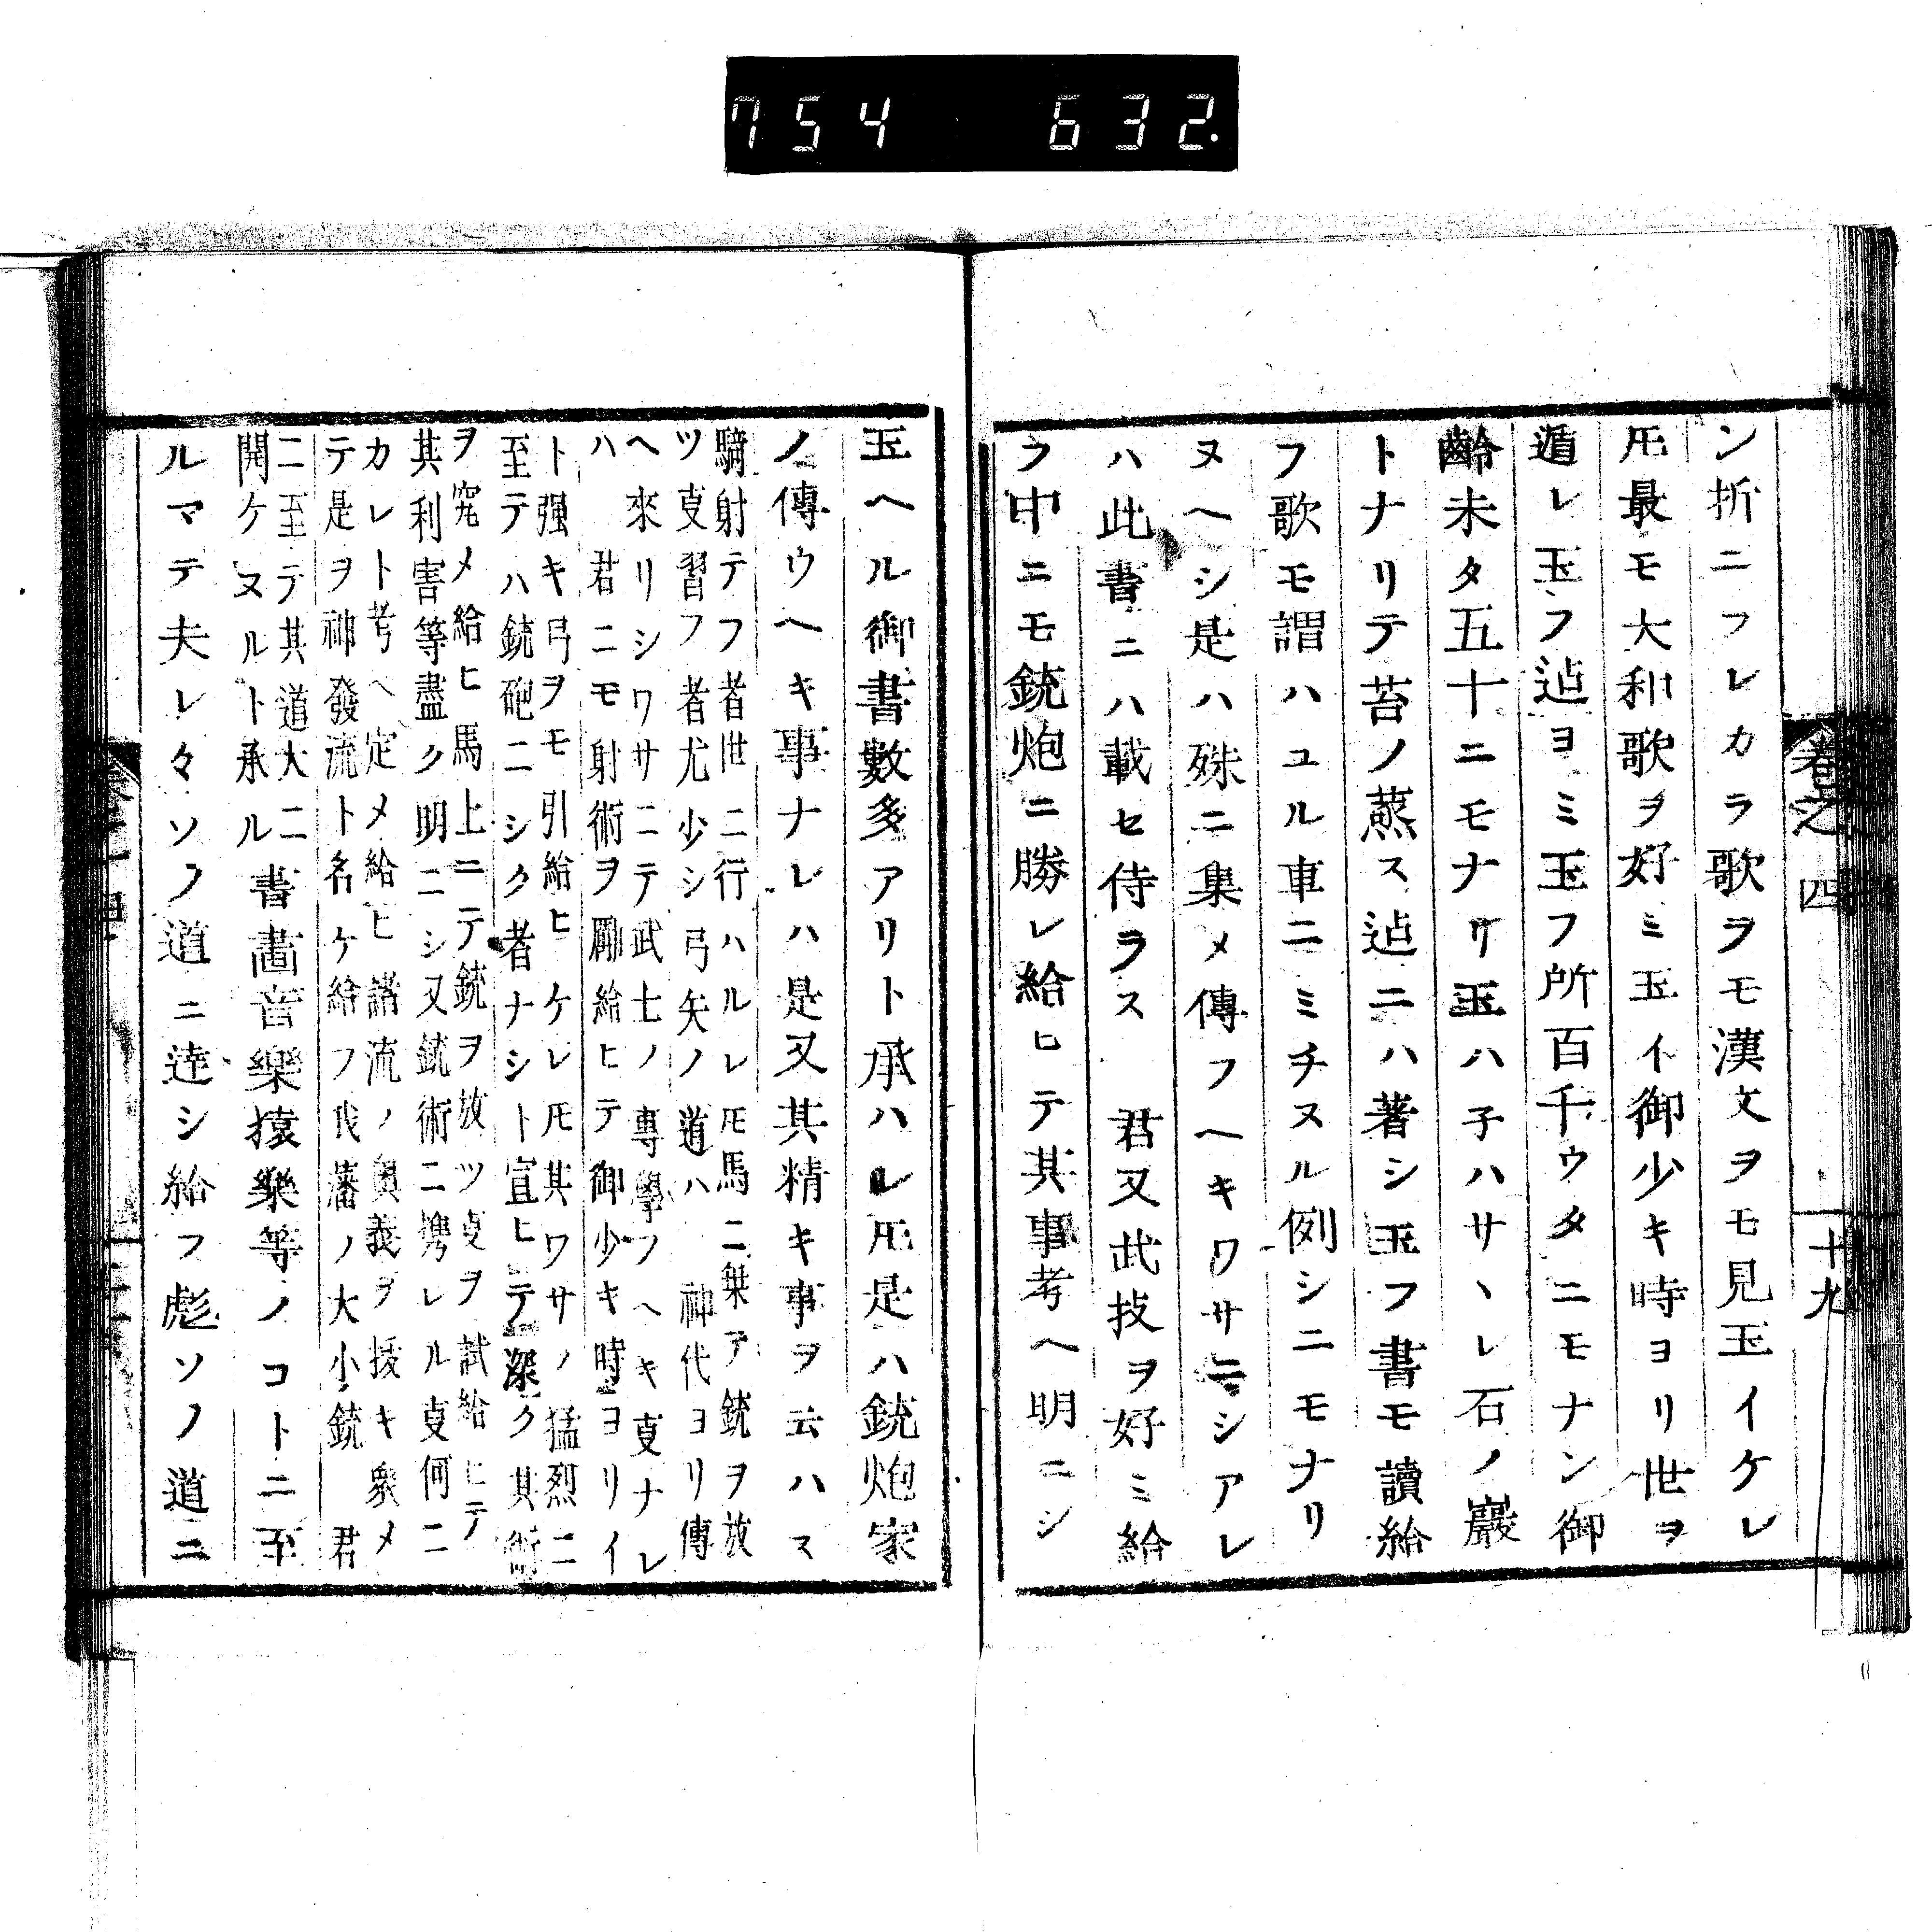 754 632.
卷之四 十九
ン折ニフレカラ歌ヲモ漢文ヲモ見玉イケレ
𪜈最モ大和歌ヲ好ミ玉イ御少キ時ヨリ世ヲ
遁レ玉フ迠ヨミ玉フ所百千ウタニモナン御
齡未タ五十ニモナリ玉ハ子ハサヽレ石ノ巖
トナリテ苔ノ蒸ス迠ニハ著シ玉フ書モ讀給
フ歌モ謂ハユル車ニミチヌル例シニモナリ
ヌヘシ是ハ殊ニ集メ傳フヘキワサニシアレ
ハ此書ニハ載セ侍ラス 君又武技ヲ好ミ給
フ中ニモ銃炮ニ勝レ給ヒテ其事考ヘ明ニシ
玉ヘル御書數多アリト承ハレ𪜈是ハ銃炮家
ノ傳ウヘキ事ナレハ是又其精キ事ヲ云ハス
騎射テフ者世ニ行ハルレ𪜈馬ニ乗テ銃ヲ放
ツ叓習フ者尤少シ弓矢ノ道ハ 神代ヨリ傳
ヘ來リシワサニテ武士ノ專學フヘキ叓ナレ
ハ 君ニモ射術ヲ勵給ヒテ御少キ時ヨリイ
ト强キ弓ヲモ引給ヒケレ𪜈其ワサノ猛烈ニ
至テハ銃砲ニシク者ナシト宣ヒテ深ク其術
ヲ究メ給ヒ馬上ニテ銃ヲ放ツ叓ヲ試給ヒテ
其利害等盡ク明ニシ又銃術ニ携レル叓何ニ
カレト考ヘ定メ給ヒ諸流ノ奥義ヲ拔キ衆メ
テ是ヲ神發流ト名ケ給フ我藩ノ大小銃 君
ニ至テ其道大ニ
開ケヌルト承ル書畵音樂猿樂等ノコトニ至
ルマテ夫レ々ソノ道ニ達シ給フ彪ソノ道ニ